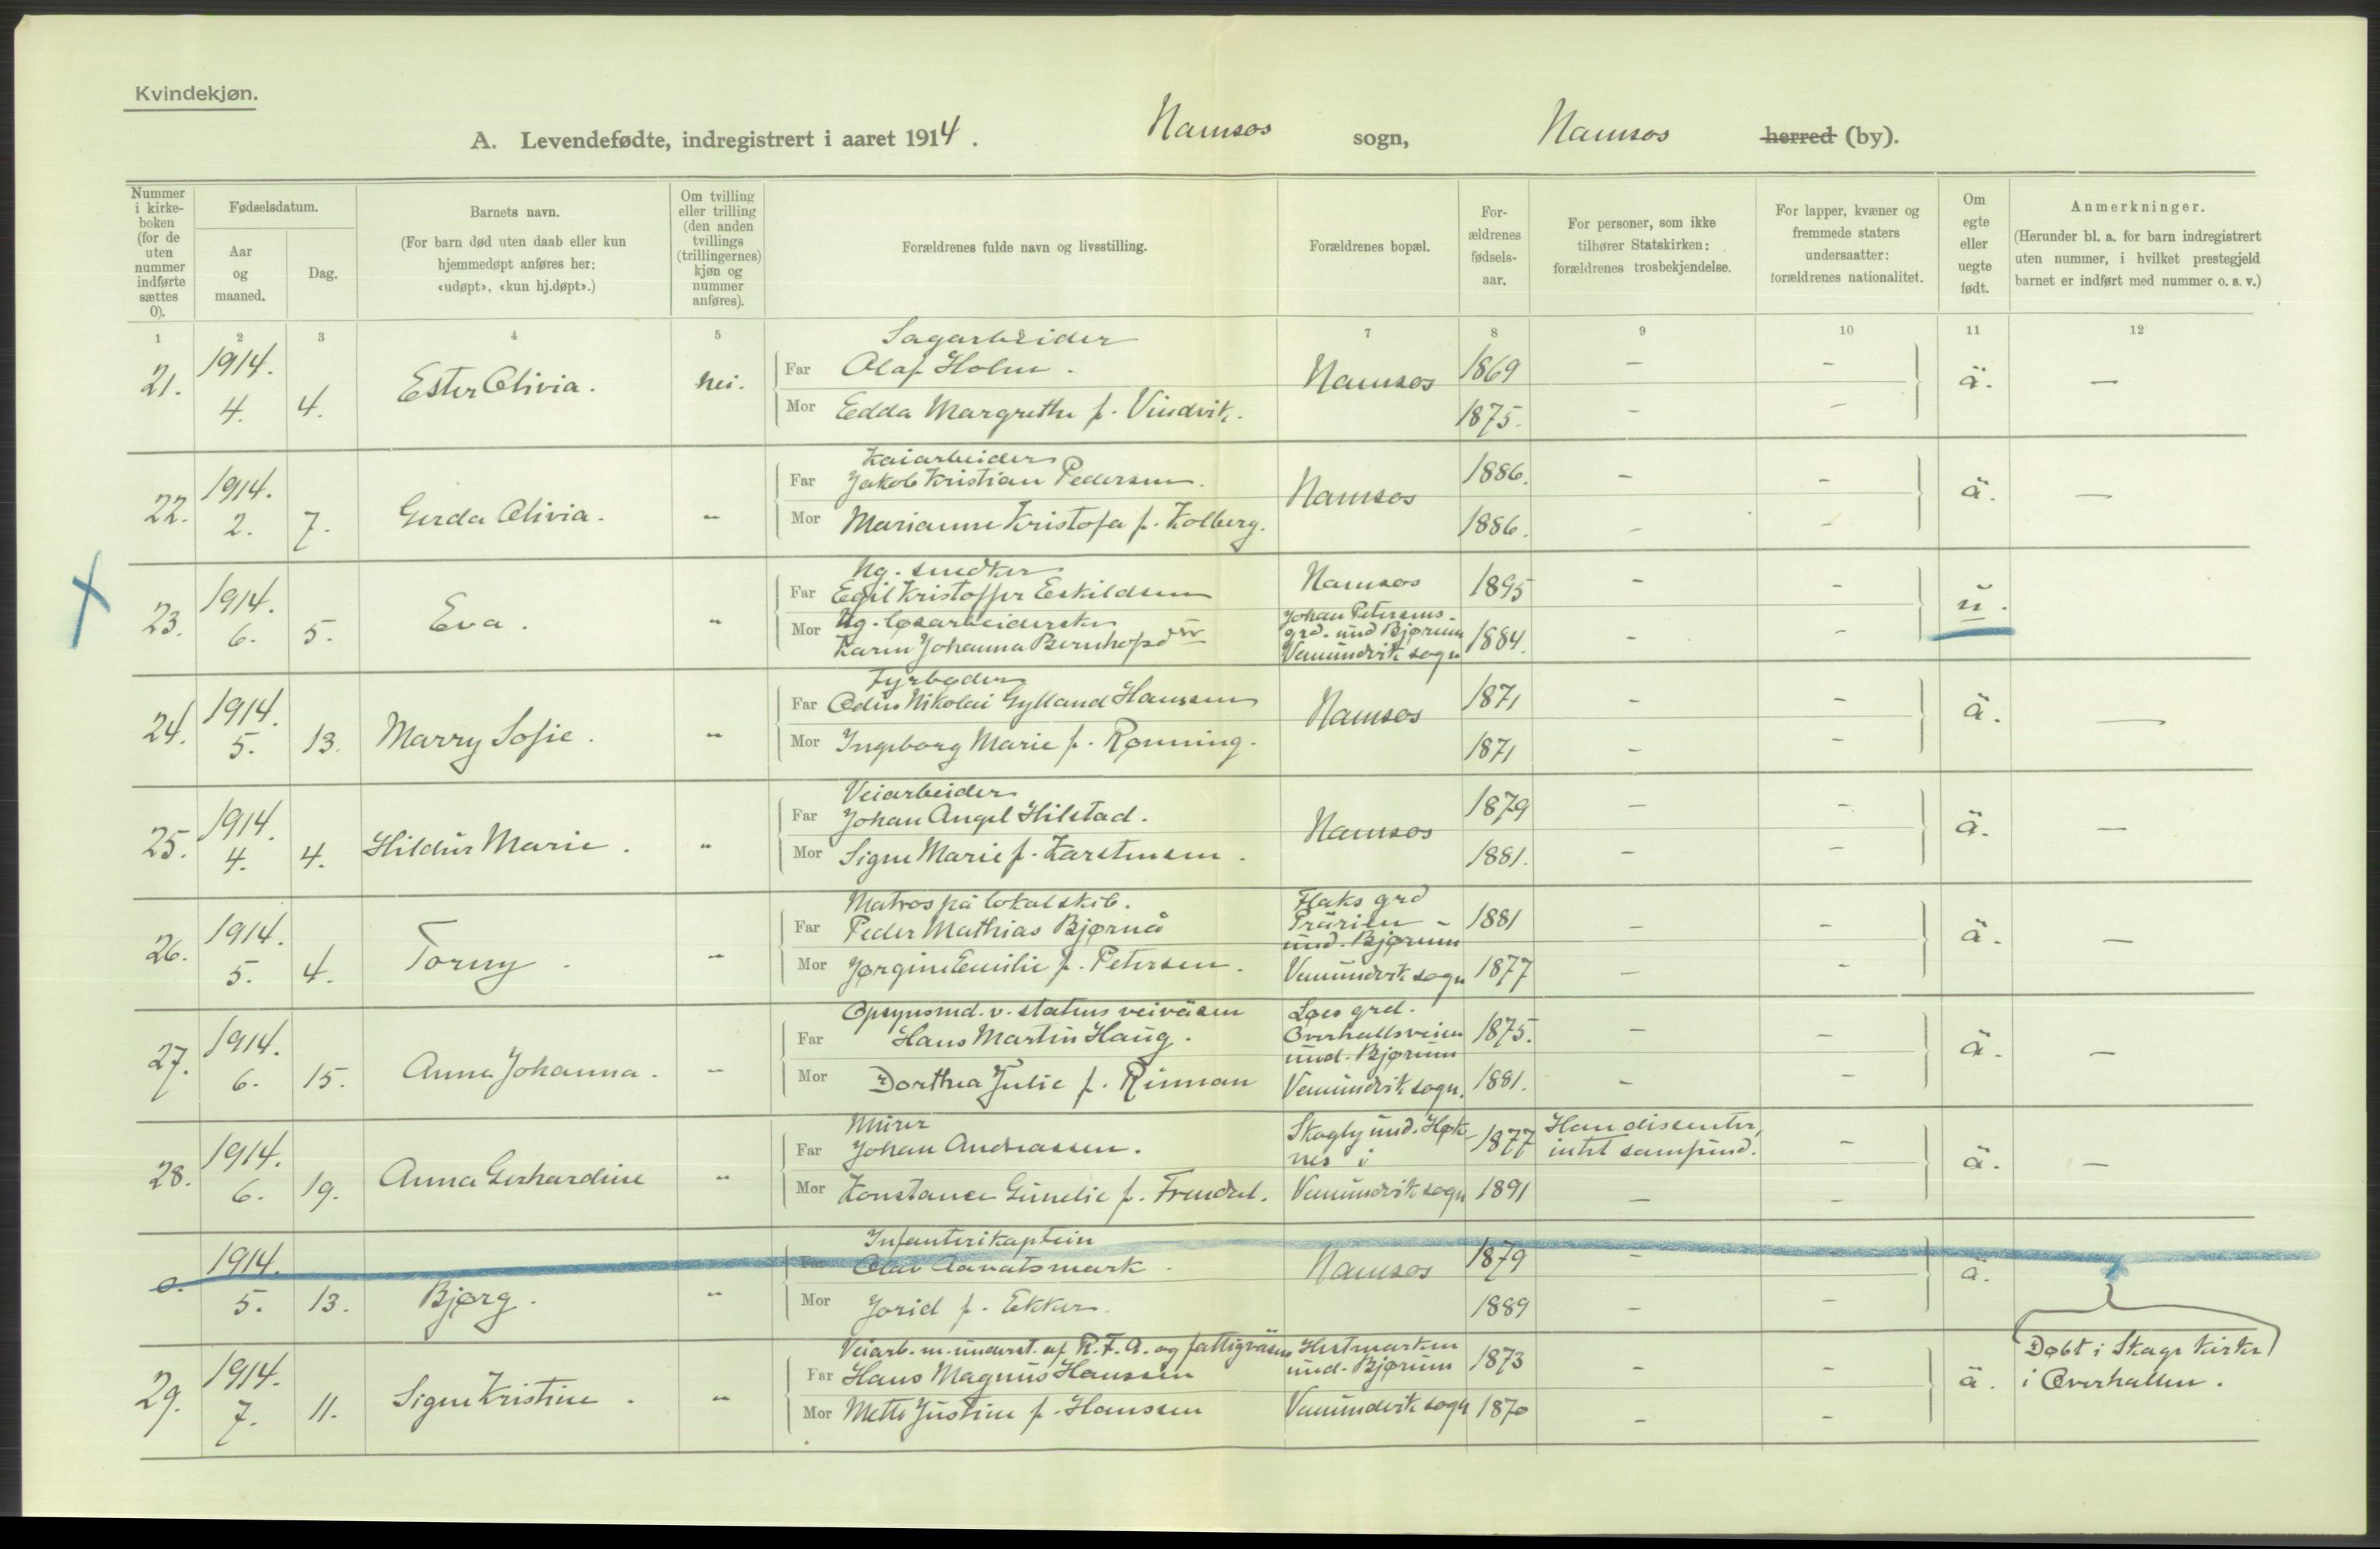 Kvindekjøn.
A. Levendefødte, indregistrert i aaret 1914. Namsos sogn, Namsos herred (by).
Nummer i kirkeboken (for de uten nummer indførte sættes 0).
Fødselsdatum.
Aar og maaned.
Dag.
Barnets navn.
(For barn død uten daab eller kun hjemmedøpt anføres her: «udøpt», «kun hj.døpt».)
Om tvilling eller trilling (den anden tvillings (trillingernes) kjøn og nummer anføres).
Forældrenes fulde navn og livsstilling.
Forældrenes bopæl.
Forældrenes fødselsaar.
For personer, som ikke tilhører Statskirken: forældrenes trosbekjendelse.
For lapper, kvæner og fremmede staters undersaatter: forældrenes nationalitet.
Om egte eller uegte født.
Anmerkninger.
(Herunder bl. a. for barn indregistrert uten nummer, i hvilket prestegjeld barnet er indført med nummer o. s. v.)
1 2 3 4 5 7 8 9 10 11 12
Sagarbeider
21. 1914. 4. 4. Ester Olivia. nei. Far Olaf Holm. Namsos 1869 – – ä. –
Mor Edda Margrethe f. Vindvik. 1875. – –
Kaiarbeider
22. 1914. 2. 7. Gerda Olivia. " Far Jakob Kristian Pedersen. Namsos 1886. – – ä. –
Mor Marianne Kristofa f. Kolberg. 1886. – –
Ug. smedker
23. 1914. 6. 5. Eva. " Far Egil Kristoffer Eskildsen Namsos 1895 – – u.
Ug. løsarbeiderske Johan Petersens
Mor Karen Johanna Bernhofsd grd. und Bjørum 1884. – –
Vemundvik sogn
Fyrbøder
24. 1914. 5. 13. Marry Sofie. " Far Odin Nikolai Gylland Hanssen Namsos 1871 – – ä. –
Mor Ingeborg Marie f. Rønning. 1871 – –
Veiarbeider
25. 1914. 4. 4. Hildur Marie. " Far Johan Angel Hilstad. Namsos 1879 – – ä. –
Mor Signe Marie f. Karstensen. 1881. – –
Matros på lokalskib. Flaks grd
26. 1914. 5. 4. Torny. " Far Peder Mathias Bjørnå Prärien – 1881 – – ä. –
und. Bjørum
Mor Jørgine Emilie f. Petersen. Vemundvik sogn 1877 – –
Opsynsmd. v. statens veiväsen Løes grd.
27. 1914. 6. 15. Anna Johanna. – Far Hans Martin Haug. Overhallsveien 1875. – – ä. –
und. Bjørum
Mor Dorthea Julie f. Rinnan Vemundvik sogn. 1881. – –
Murer Skogly und. Høk-
28. 1914. 6. 19. Anna Gerhardine " Far Johan Andreassen. nes i 1877 Han dissenter, intet samfund. – ä. –
Mor Konstance Gunelie f. Fremdal. Vemundvik sogn 1891 – –
Infanterikaptein
0. 1914. 5. 13. Bjørg. " Far Olav Aavatsmark. Namsos 1879 – – ä.
Mor Jorid f. Ekker. 1889 – –
Veiarb. m. underst. af R. F. A. og fattigväsen Hestmarken
29. 1914. 7. 11. Signe Kristine. " Far Hans Magnus Hanssen und. Bjørum 1873 – – ä. Døbt i Skage kirke
Mor Mette Justine f. Hanssen Vemundvik sogn 1870 – – i Overhallen.